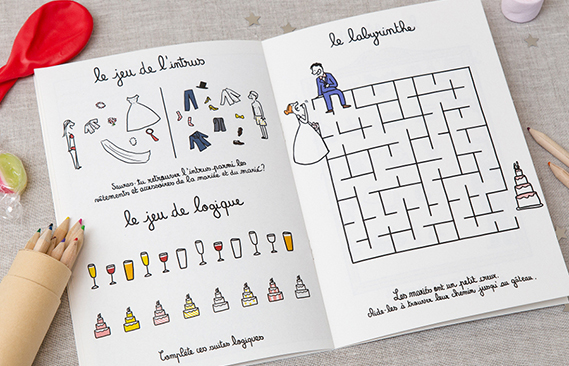 le jeu de l'intrus
Sauras-tu retrouver l'intrus parmi les
vêtements et accessoires de la mariée et du marié?
le jeu de logique
Complète ces suites logiques
le labyrinthe
Les mariés ont un petit creux.
Aide-les à trouver leur chemin jusqu'au gâteau.